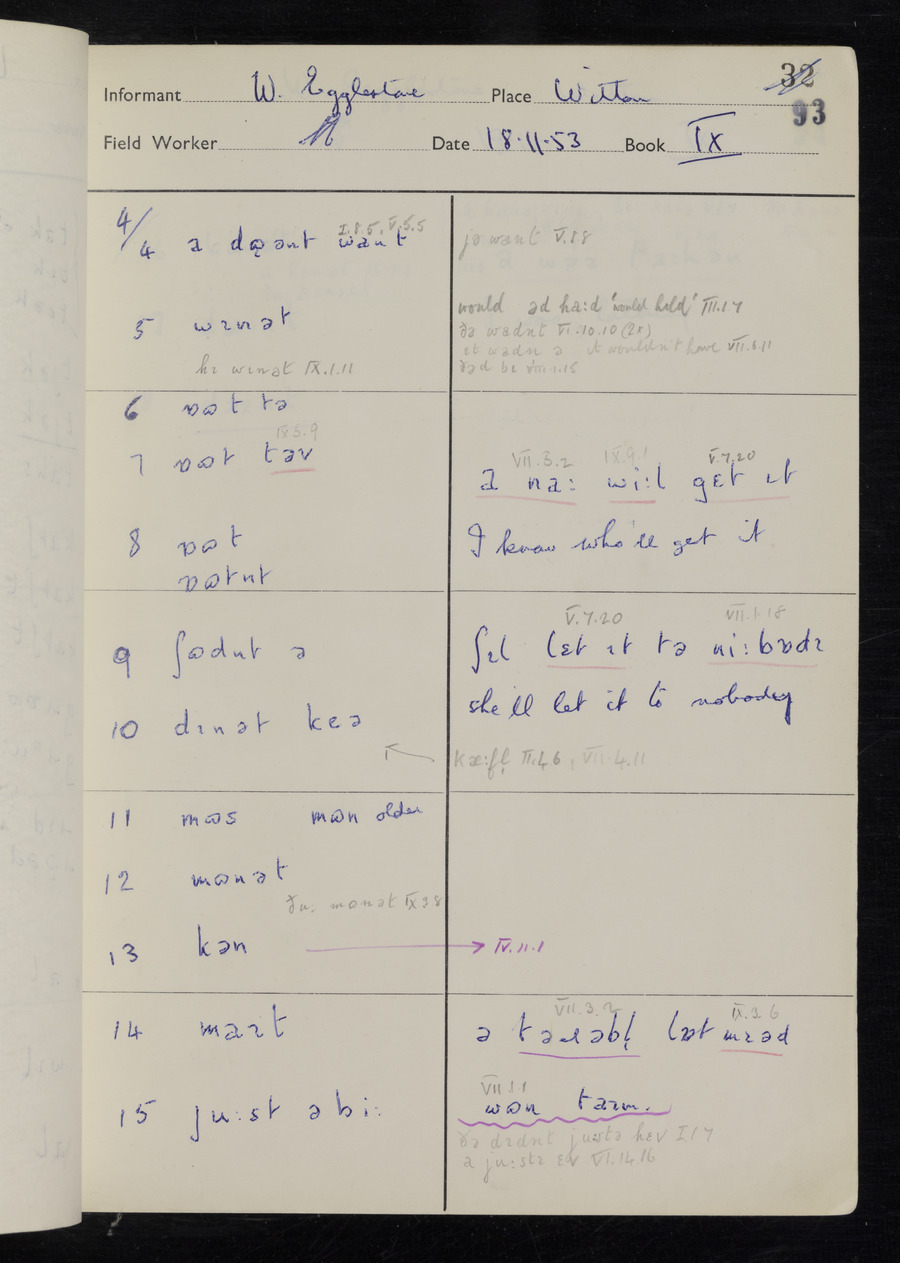 32
Informant W. Egglestone Place Witton
93
Field Worker Date 18.11.53 Book IX
I.8.5, V.5.5
4/4 want
ja want V.8.8
5 wɪnət
would əd ha:d 'would hold' III.1.7
ðə wadnt VI.10.10 (2x)
ɪt wadn ə it wouldn't have VII.6.11
ðəd bɪ VIII.1.15
hɪ wɪnət IX.1.11
6 ɒɷt tə
IX.3.9
7 ɒɷt təv
VII.3.2 IX.9.1 V.7.20
a na: wi:l gɛt ɪt
8 ɒɷt
I know who'll get it
ɒɷtnt
V.7.20 VII.1.18
9 ʃɷdnt ə
ʃɪl lɛt ɪt tə ni:bɒdɪ
she'll let it to nobody
10 dɪnət keə
II.4.6, VII.4.11
11 mɷs mɷn older
12 mɷnət
ðu: mɷnət IX.3.8
13 kən → IV.11.1
14 maɪt
VII.3.2 IX.3.6
ə təɹəbḷ lɒt mɪəd
15 ju:st əbi:
VII.3.1
wɒn taɪm.
ðə dɪdnt justə hɛv I.1.7
a ju:stɪ ɛv VI.14.16